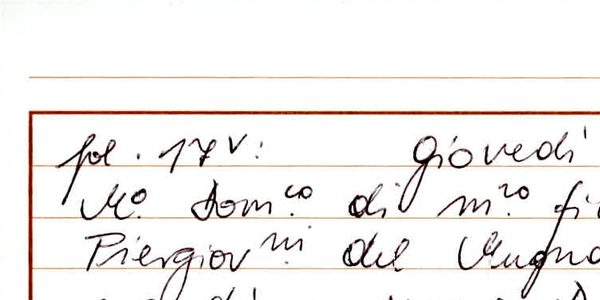 fol. 17v: Giovedì
Mo. Dom.co di m.ro
Piergiov.ni del